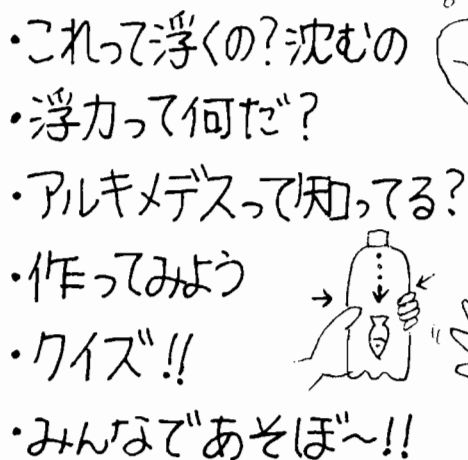 ・これって浮くの?沈むの
・浮力って何だ?
・アルキメデスって知ってる?
・作ってみよう
・クイズ!!
・みんなであそぼ~!!